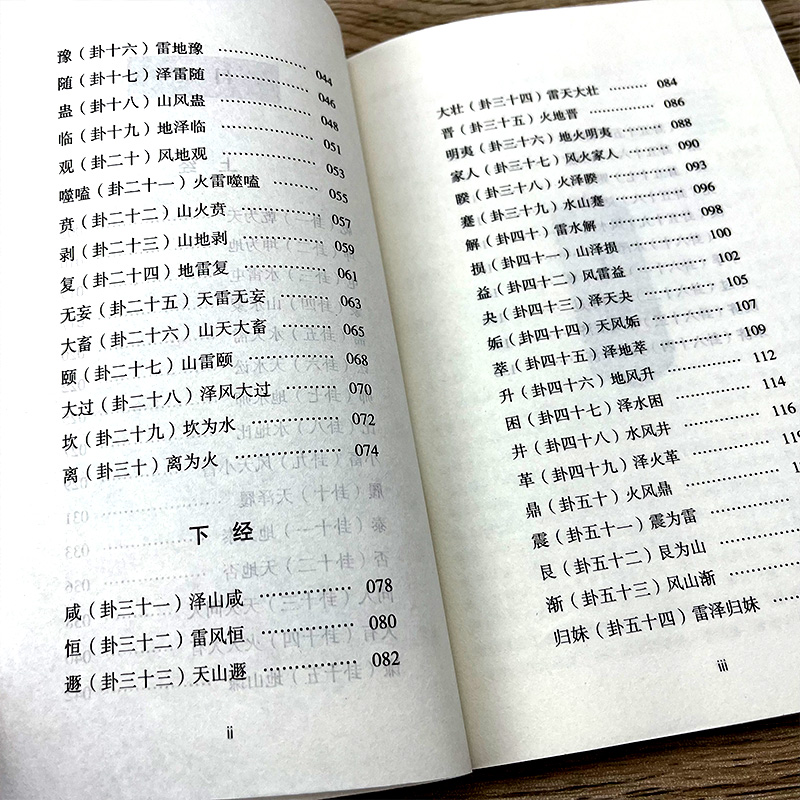 豫（卦十六）雷地豫 ………… 044
随（卦十七）泽雷随 ………… 046
蛊（卦十八）山风蛊 ………… 048
临（卦十九）地泽临 ………… 051
观（卦二十）风地观 ………… 053
噬嗑（卦二十一）火雷噬嗑 ………… 055
贲（卦二十二）山火贲 ………… 057
剥（卦二十三）山地剥 ………… 059
复（卦二十四）地雷复 ………… 061
无妄（卦二十五）天雷无妄 ………… 063
大畜（卦二十六）山天大畜 ………… 065
颐（卦二十七）山雷颐 ………… 068
大过（卦二十八）泽风大过 ………… 070
坎（卦二十九）坎为水 ………… 072
离（卦三十）离为火 ………… 074
下 经
咸（卦三十一）泽山咸 ………… 078
恒（卦三十二）雷风恒 ………… 080
遯（卦三十三）天山遯 ………… 082
ii
大壮（卦三十四）雷天大壮 ………… 084
晋（卦三十五）火地晋 ………… 086
明夷（卦三十六）地火明夷 ………… 088
家人（卦三十七）风火家人 ………… 090
睽（卦三十八）火泽睽 ………… 093
蹇（卦三十九）水山蹇 ………… 096
解（卦四十）雷水解 ………… 098
损（卦四十一）山泽损 ………… 100
益（卦四十二）风雷益 ………… 102
夬（卦四十三）泽天夬 ………… 105
姤（卦四十四）天风姤 ………… 107
萃（卦四十五）泽地萃 ………… 109
升（卦四十六）地风升 ………… 112
困（卦四十七）泽水困 ………… 114
井（卦四十八）水风井 ………… 116
革（卦四十九）泽火革 …………
鼎（卦五十）火风鼎 …………
震（卦五十一）震为雷 …………
艮（卦五十二）艮为山 …………
渐（卦五十三）风山渐 …………
归妹（卦五十四）雷泽归妹 …………
iii